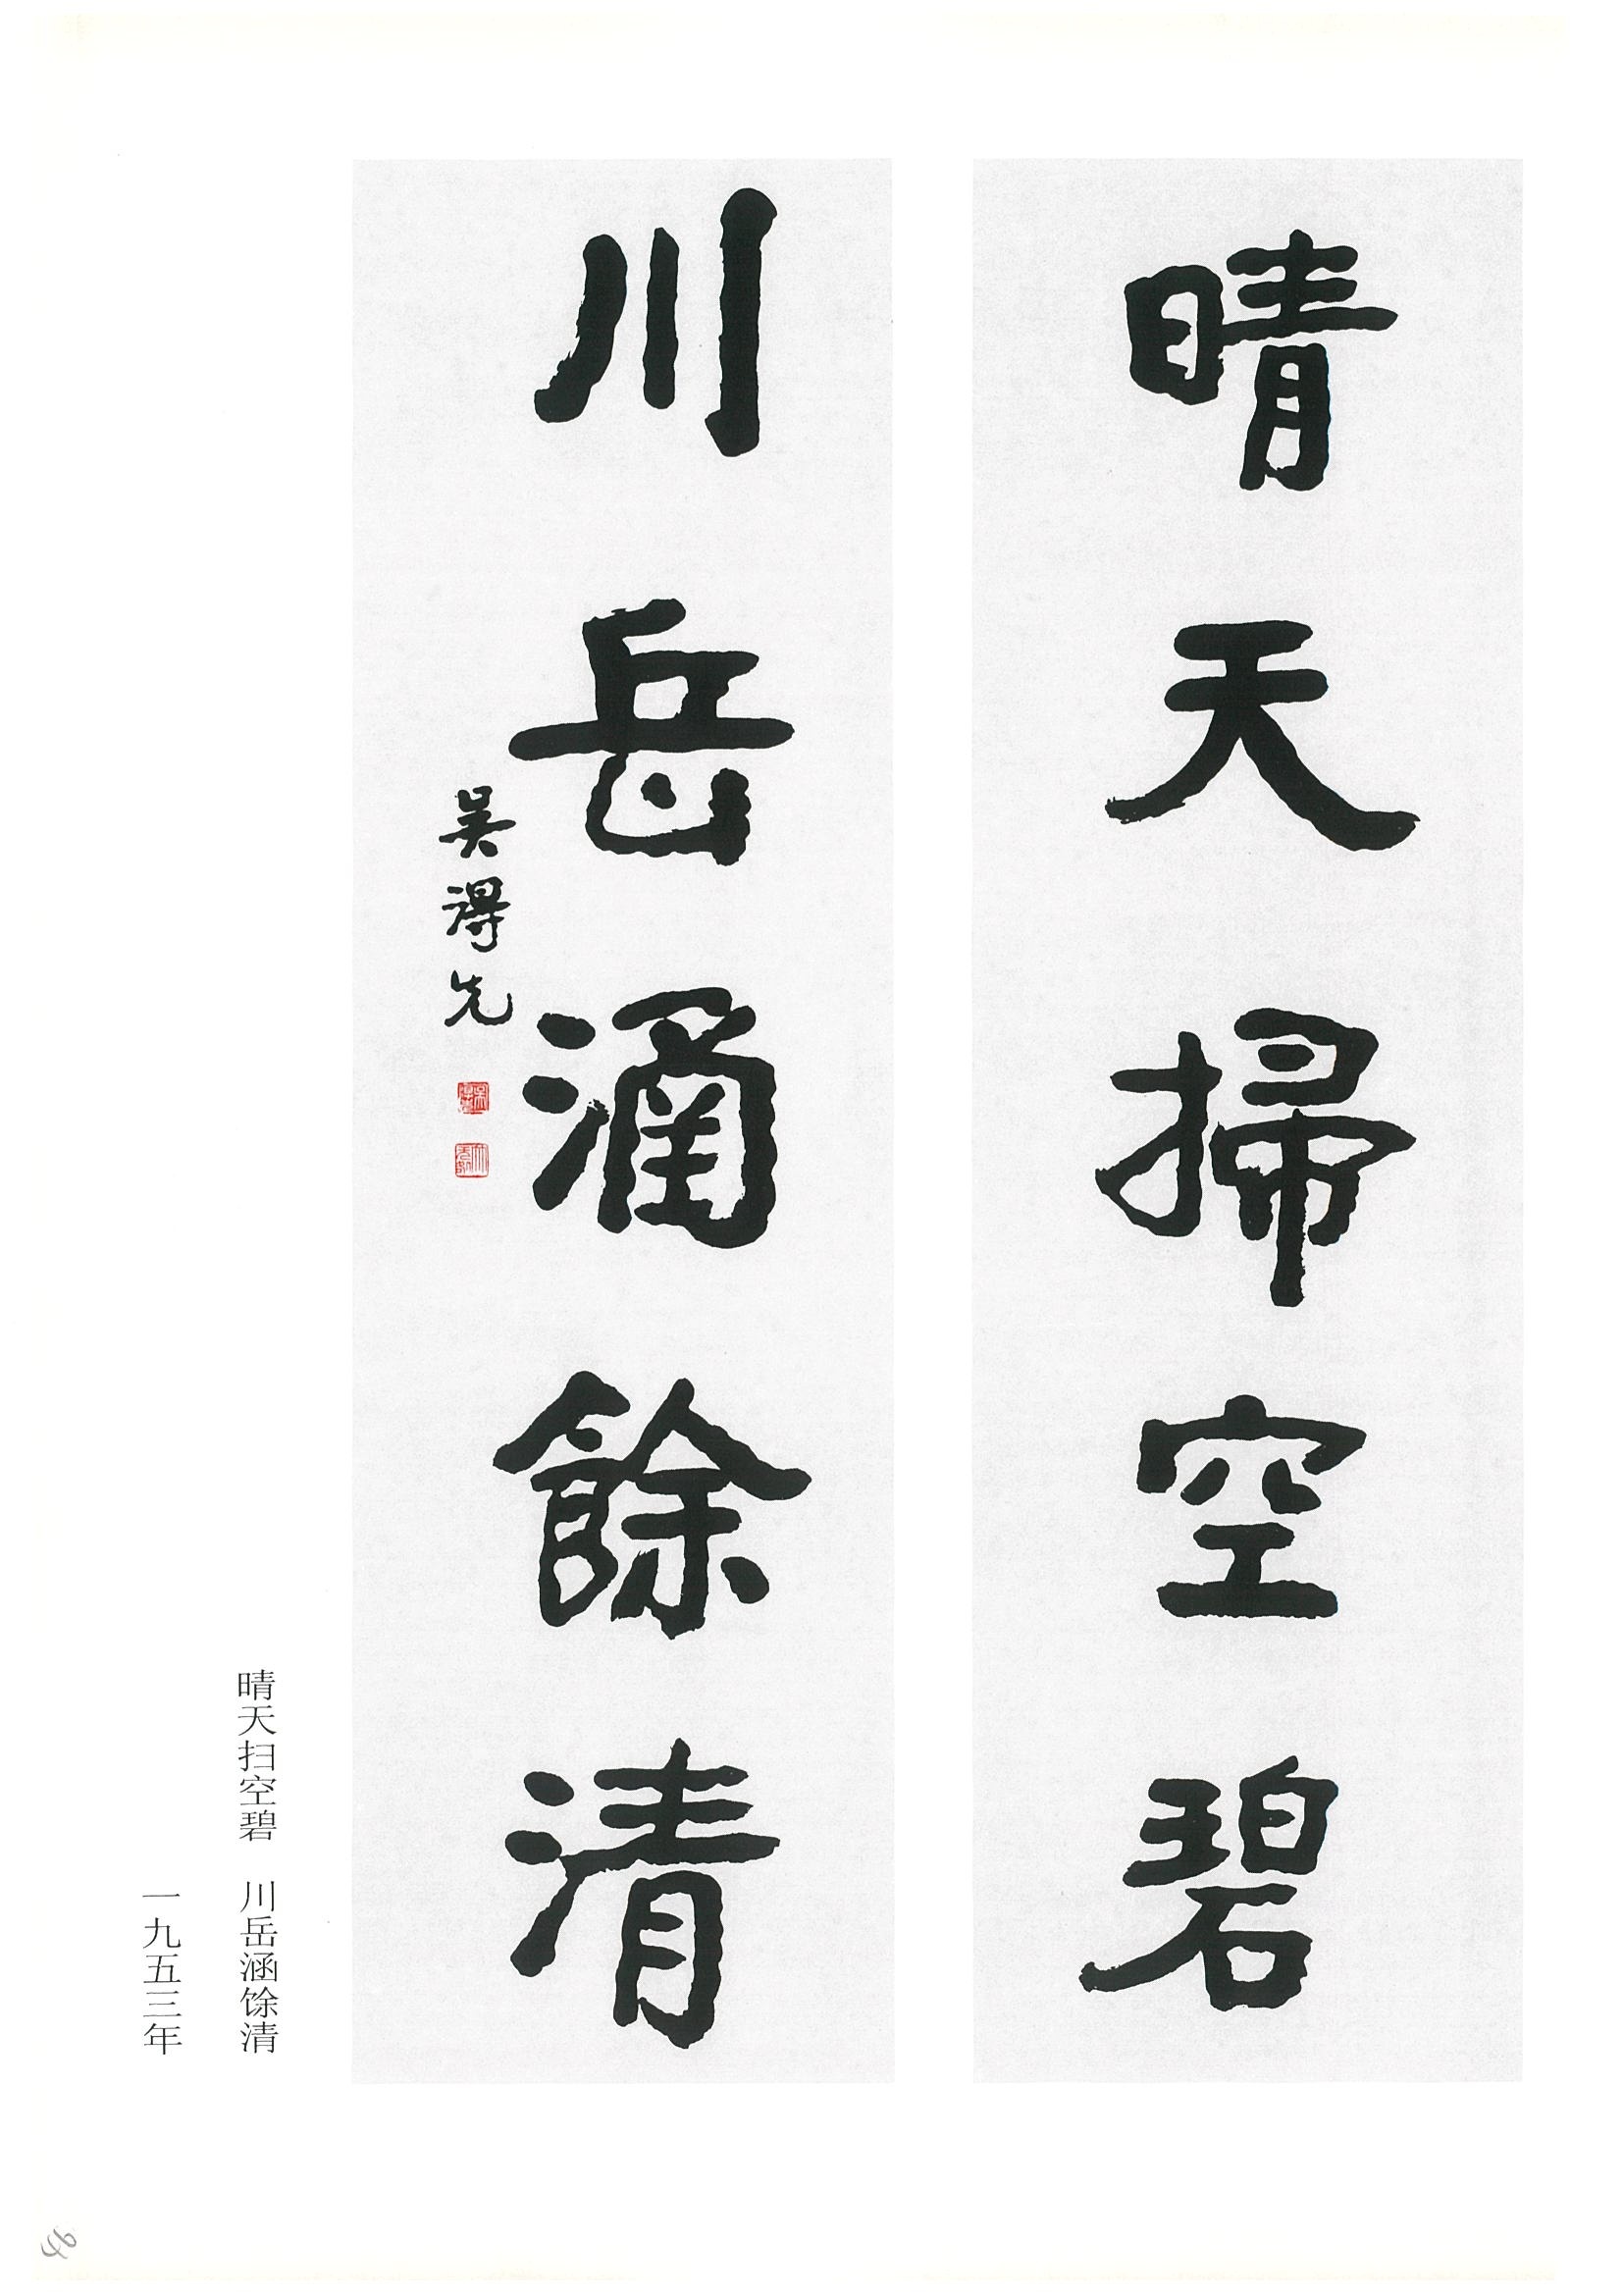 晴天掃空碧
川岳涵餘清
吴得先
晴天扫空碧　川岳涵馀清
一九五三年